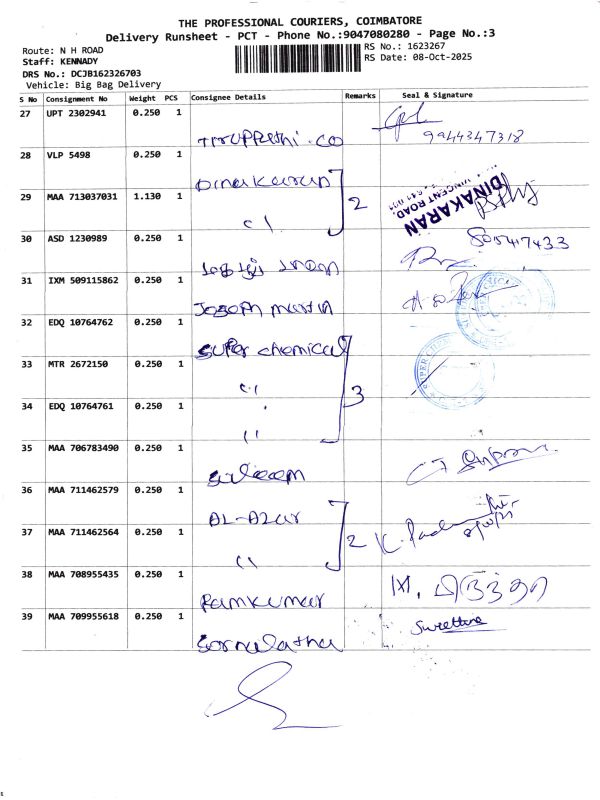 THE PROFESSIONAL COURIERS, COIMBATORE
Delivery Runsheet - PCT - Phone No.:9047080280 - Page No.:3
Route: N H ROAD
RS No.: 1623267
Staff: KENNADY
RS Date: 08-Oct-2025
DRS No.: DCJB162326703
Vehicle: Big Bag Delivery
S No Consignment No Weight PCS Consignee Details Remarks Seal & Signature
27 UPT 2302941 0.250 1
9944347318
28 VLP 5498 0.250 1 Dinakaran
29 MAA 713037031 1.130 1 2 DINAKARAN
VINCENT ROAD,
30 ASD 1230989 0.250 1
31 IXM 509115862 0.250 1 Joseph martin
32 EDQ 10764762 0.250 1 super chemical
33 MTR 2672150 0.250 1 3 SUPER
34 EDQ 10764761 0.250 1
35 MAA 706783490 0.250 1
36 MAA 711462579 0.250 1 AL-Azar
37 MAA 711462564 0.250 1 2
38 MAA 708955435 0.250 1 Ramkumar
39 MAA 709955618 0.250 1 Sornalatha